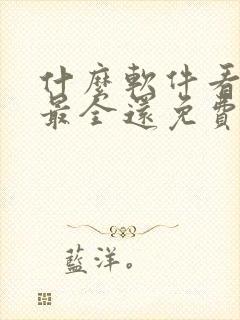 什麼軟件看
最全還免費
藍洋。